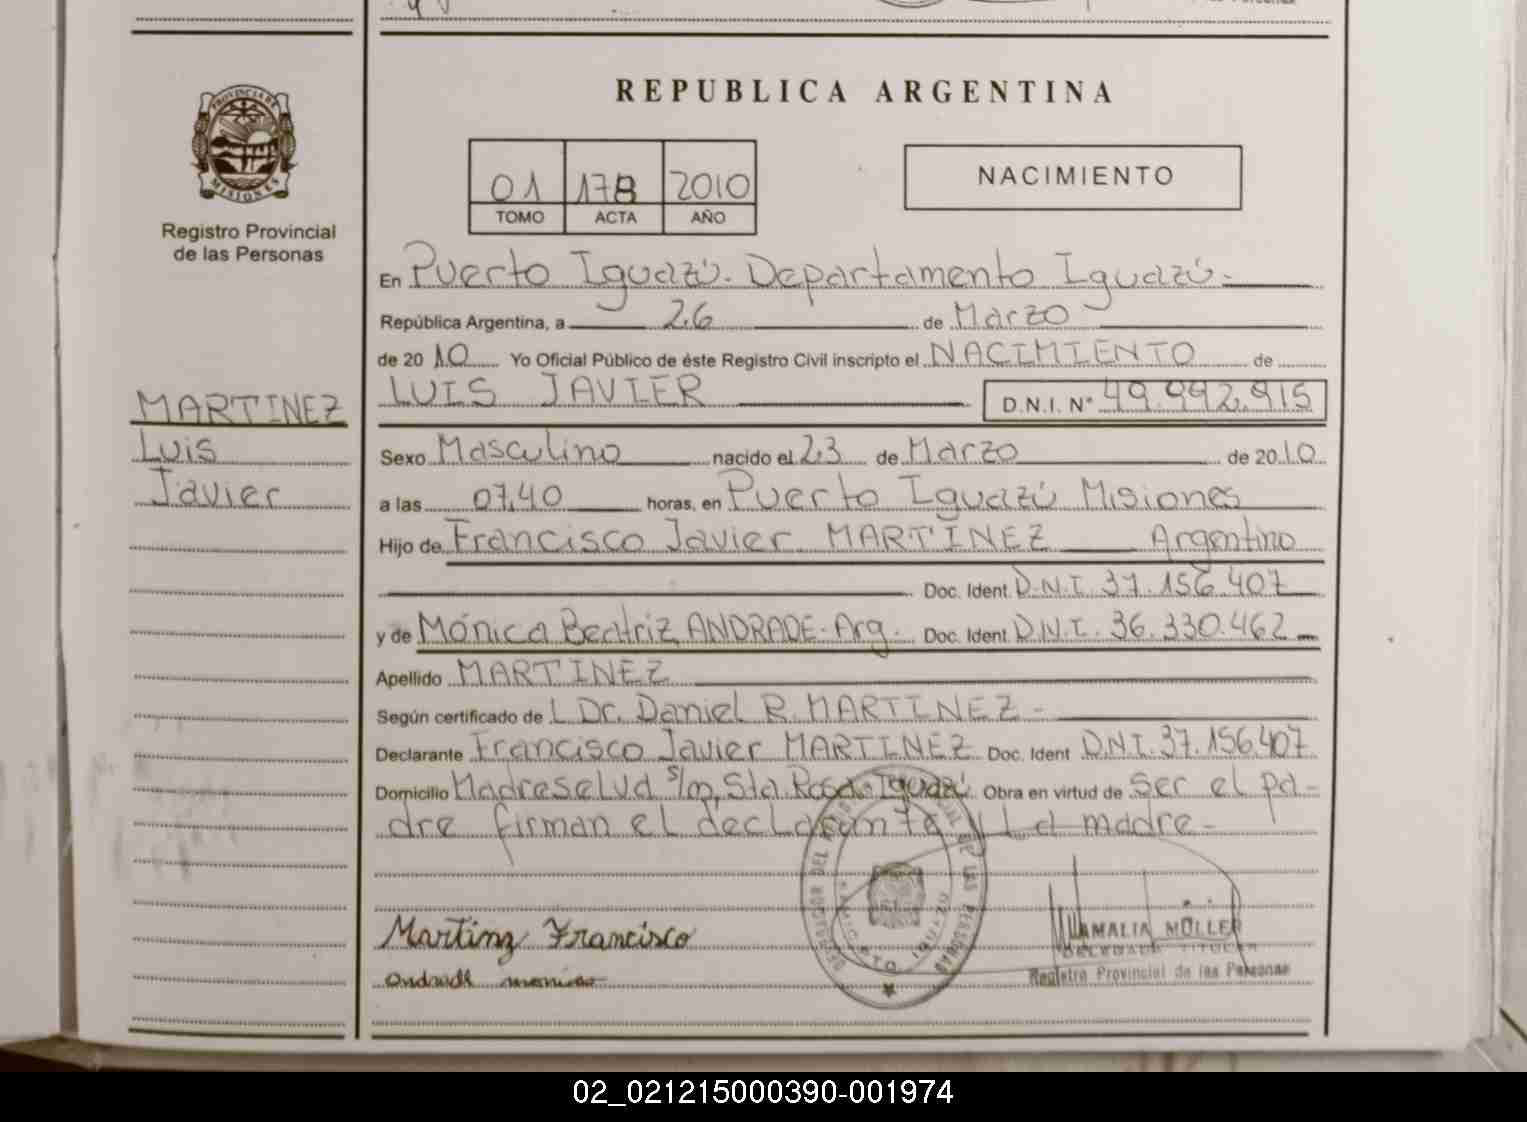 REPUBLICA ARGENTINA
PROVINCIA DE MISIONES
Registro Provincial
de las Personas
01 178 2010
TOMO ACTA AÑO
NACIMIENTO
En Puerto Iguazú. Departamento Iguazú.
República Argentina, a 26 de Marzo
de 2010 Yo Oficial Público de éste Registro Civil inscripto el NACIMIENTO de
LUIS JAVIER D.N.I. N° 49.992.915
MARTINEZ
Luis
Javier
Sexo Masculino nacido el 23 de Marzo de 2010
a las 07,40 horas, en Puerto Iguazú Misiones
Hijo de Francisco Javier MARTINEZ Argentino
Doc. Ident. D.N.I. 37.156.407
y de Mónica Beatriz ANDRADE. Arg. Doc. Ident. D.N.I. 36.330.462
Apellido MARTINEZ
Según certificado de L Dr. Daniel R. MARTINEZ -
Declarante Francisco Javier MARTINEZ Doc. Ident D.N.I. 37.156.407
Domicilio Madreselva s/n, Sta. Rosa. Iguazú Obra en virtud de Ser el pa-
dre firman el declarante y La madre-
Martinz Francisco
AMALIA MÜLLER
DELEGADA TITULAR
andrade monica
Registro Provincial de las Personas
02_021215000390-001974